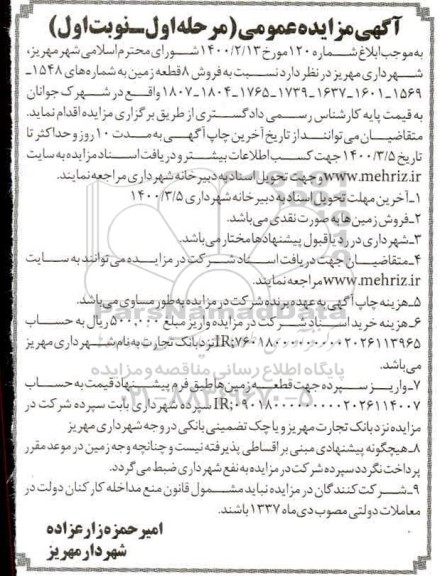 آگهی مزایده عمومی (مرحله اول_نوبت اول)
به موجب ابلاغ شماره ۱۲۰ مورخ ۱۴۰۰/۲/۱۳ شورای محترم اسلامی شهر مهریز،
شهرداری مهریز در نظر دارد نسبت به فروش ۸ قطعه زمین به شماره های ۱۵۴۸-
۱۵۶۹-۱۶۰۱-۱۶۳۷-۱۷۳۹-۱۷۶۵-۱۸۰۴-۱۸۰۷ واقع در شهرک جوانان
به قیمت پایه کارشناس رسمی دادگستری از طریق برگزاری مزایده اقدام نماید.
متقاضیان می توانند از تاریخ آخرین چاپ آگهی به مدت ۱۰ روز و حداکثر تا
تاریخ ۱۴۰۰/۳/۵ جهت کسب اطلاعات بیشتر و دریافت اسناد مزایده به سایت
www.mehriz.ir و جهت تحویل اسناد به دبیرخانه شهرداری مراجعه نمایند.
۱_آخرین مهلت تحویل اسناد به دبیرخانه شهرداری ۱۴۰۰/۳/۵
۲_فروش زمین ها به صورت نقدی می باشد.
۳_شهرداری در رد یا قبول پیشنهادها مختار می باشد.
۴_متقاضیان جهت دریافت اسناد شرکت در مزایده می توانند به سایت
www.mehriz.ir مراجعه نمایند.
۵_هزینه چاپ آگهی به عهده برنده شرکت در مزایده به طور مساوی می باشد.
۶_هزینه خرید اسناد شرکت در مزایده واریز مبلغ ۵۰۰،۰۰۰ ریال به حساب
نزد بانک تجارت به نام شهرداری مهریز
می باشد.
۷_واریز سپرده جهت قطعه زمین ها طبق فرم پیشنهاد قیمت به حساب
سپرده شهرداری بابت سپرده شرکت در
مزایده نزد بانک تجارت مهریز و یا چک تضمینی بانکی در وجه شهرداری مهریز
۸_هیچگونه پیشنهادی مبنی بر اقساطی پذیرفته نیست و چنانچه وجه زمین در موعد مقرر
پرداخت نگردد سپرده شرکت در مزایده به نفع شهرداری ضبط می گردد.
۹_شرکت کنندگان در مزایده نباید مشمول قانون منع مداخله کارکنان دولت در
معاملات دولتی مصوب دی ماه ۱۳۳۷ باشند.
امیر حمزه زارع زاده
شهردار مهریز
ParsNamadData
پایگاه اطلاع رسانی مناقصه و مزایده